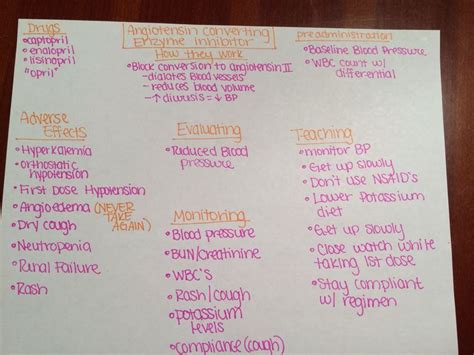 Drugs
•captopril
•enalopril
•lisinopril
"opril"
Angiotensin converting
Enzyme inhibitor
How they work
•Block conversion to angiotensin II
-dialates Blood vessels
- reduces blood volume
-↑ diurusis = ↓ BP
preadministration
•Baseline Blood Pressure
•WBC count w/
differential
Adverse
Effects
•Hyperkalemia
•orthostatic
hypotension
•First Dose Hypotension
•Angioedema (NEVER
TAKE
AGAIN)
•Dry cough
•Neutropenia
•Runal Failure
•Rash
Evaluating
•Reduced Blood
pressure
Monitoring
•Blood pressure
•BUN/creatinine
•WBC'S
•Rash/cough
•potassium
levels
•compliance (cough)
Teaching
•monitor BP
•Get up slowly
•Don't use NSAID's
•Lower Potassium
diet
•Get up slowly
•Close watch white
taking 1st dose
•Stay compliant
w/ regimen